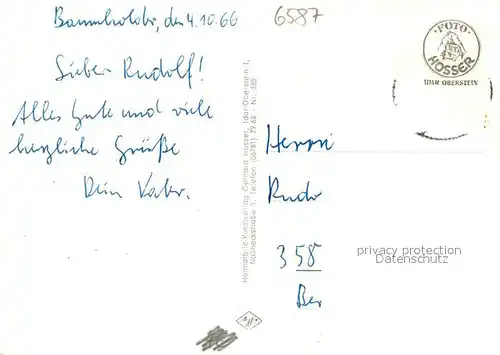 Baumholder, den 4.10.66
6587
Lieber Rudolf!
Alles Gute und viele
herzliche Grüße
Dein Vater.
Herrn
Rudo
358
Ber
· FOTO ·
HOSSER
IDAR OBERSTEIN
privacy protection
Datenschutz
Heimatbild-Kunstverlag Gerhard Hosser, Idar-Oberstein 1,
Telefon (06781) 79 68 · Nr. 385